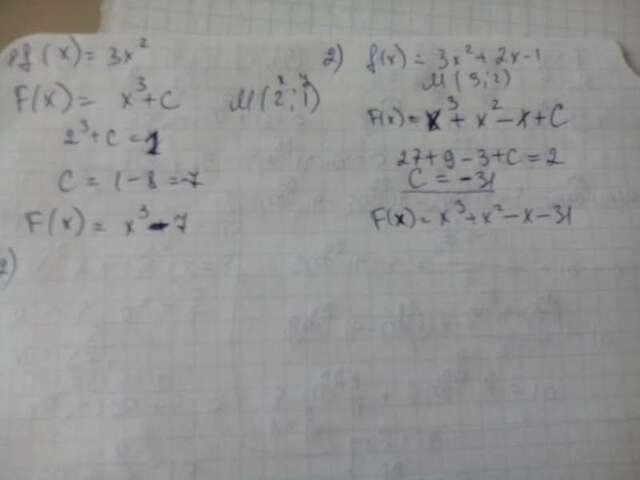 1) f(x) = 3x²
F(x) = x³ + C M(2; 1)
x y
2³ + C = 1
C = 1 - 8 = -7
F(x) = x³ - 7
2)
2) f(x) = 3x² + 2x - 1
M(3; 2)
F(x) = x³ + x² - x + C
27 + 9 - 3 + C = 2
C = -31
F(x) = x³ + x² - x - 31